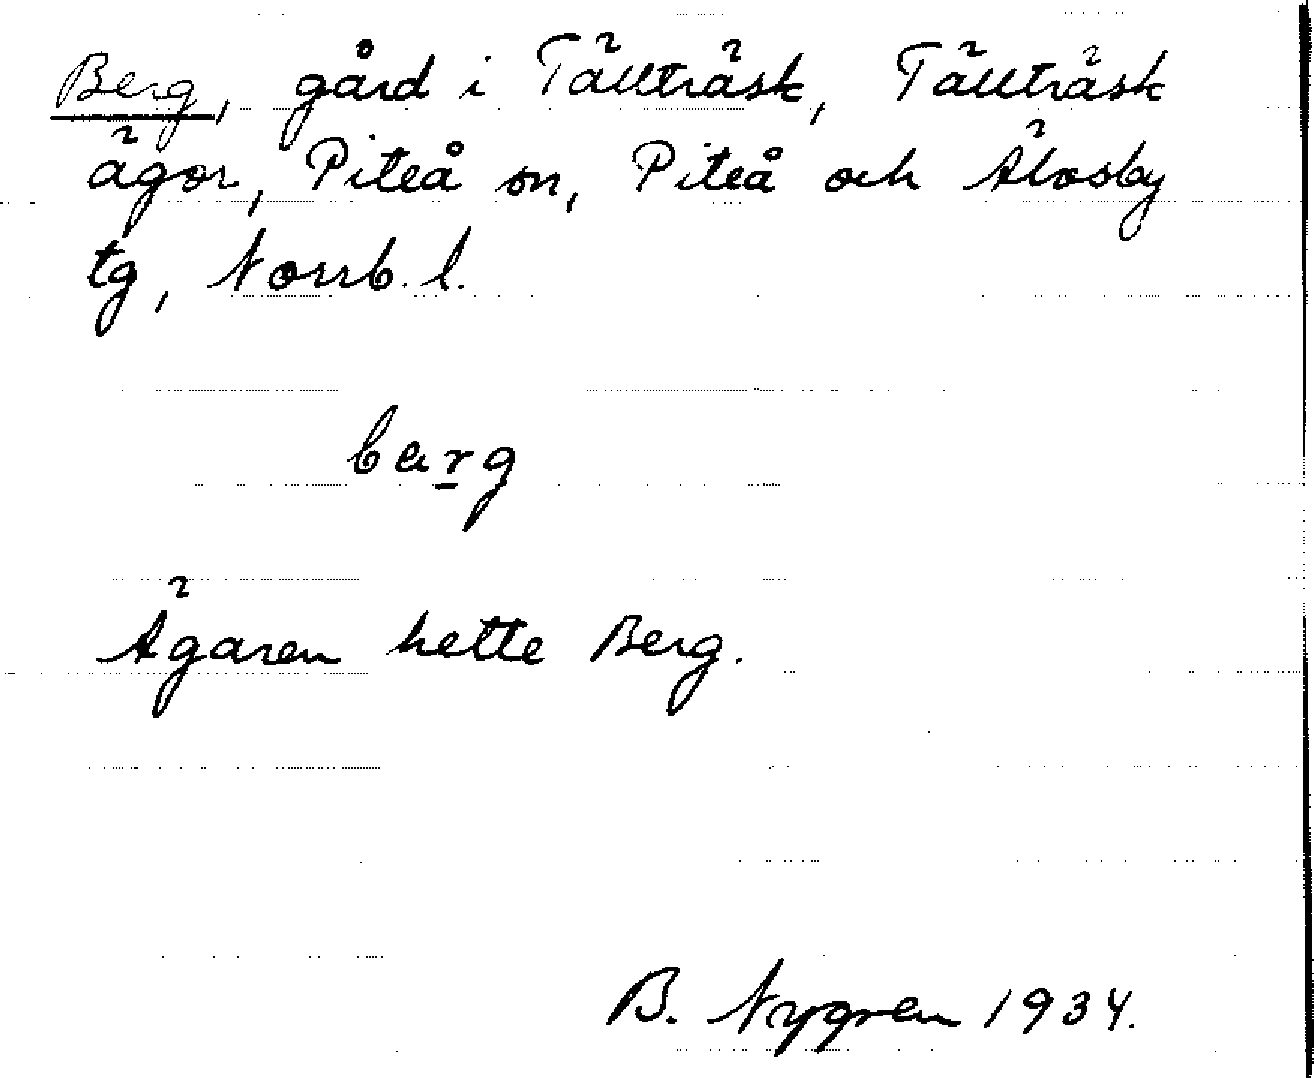 Berg, gård i Tällträsk, Tällträsk
ägor, Piteå sn, Piteå och Älvsby
tg, Norrb. l.
barg
Ägaren hette Berg.
B. Nygren 1934.